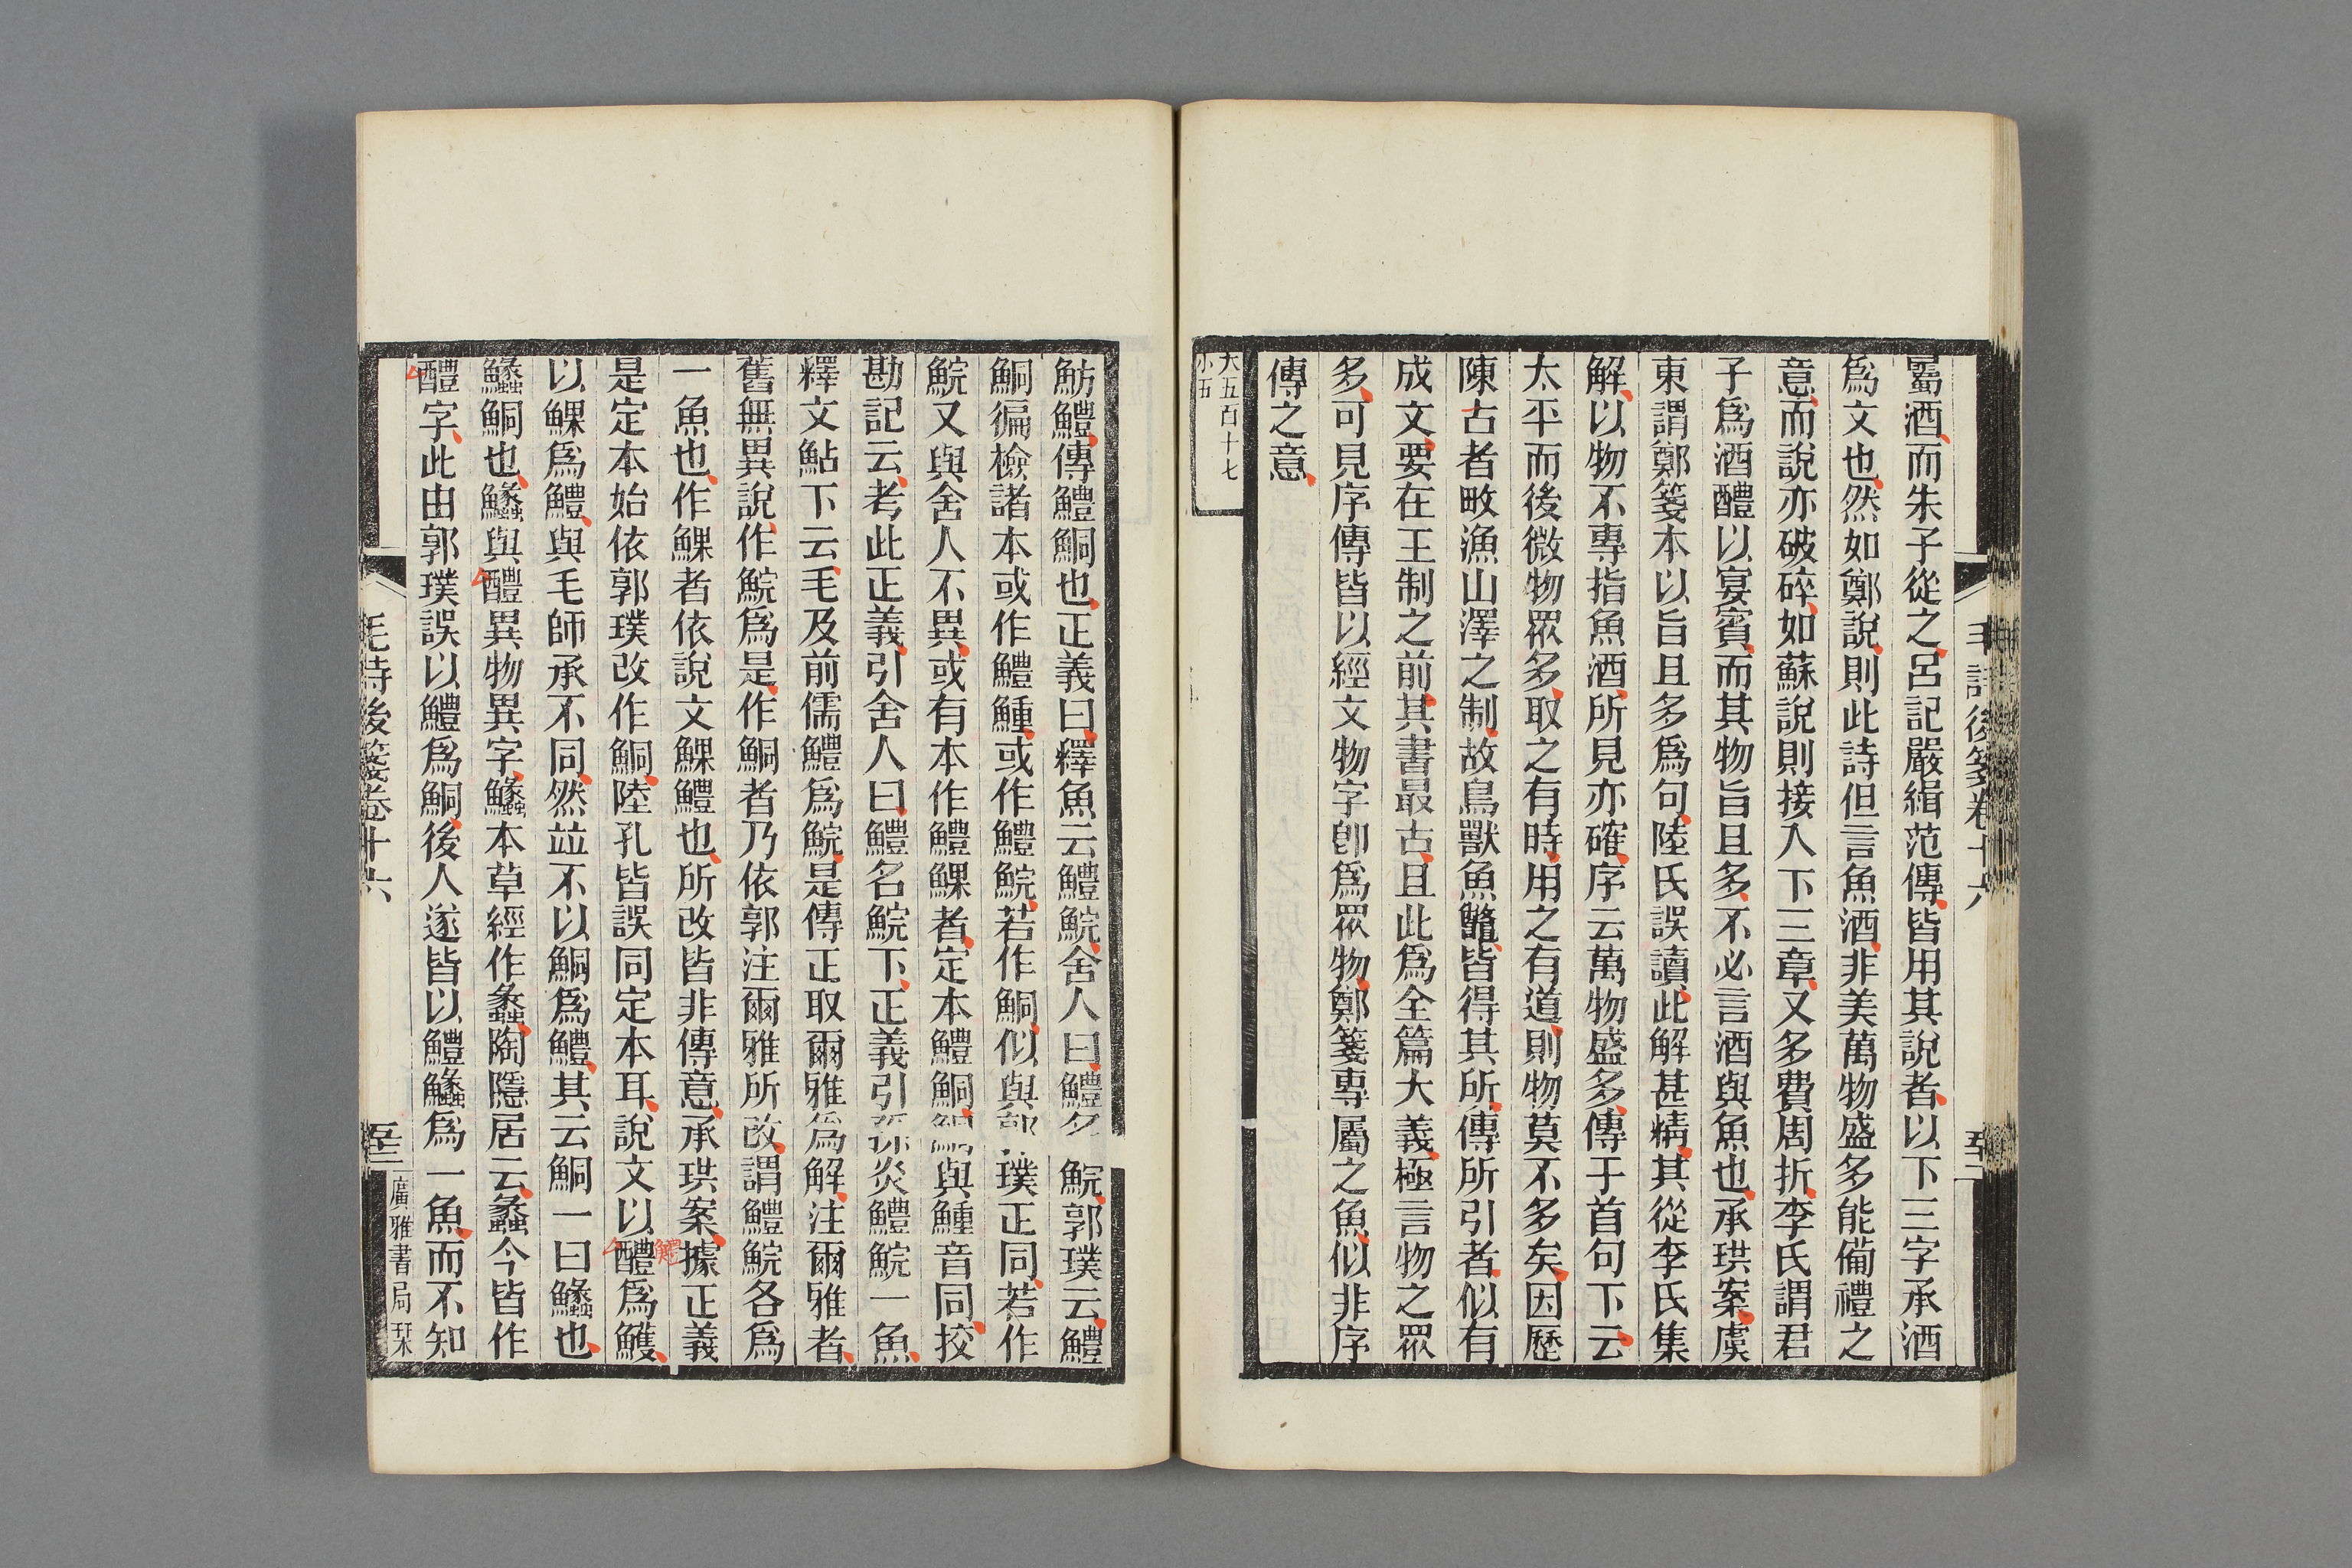 毛詩後箋卷十六
屬酒而朱子從之呂記嚴緝范傳皆用其說者以下三字承酒
爲文也然如鄭說則此詩但言魚酒非美萬物盛多能備禮之
意而說亦破碎如蘇說則接入下三章又多費周折李氏謂君
子爲酒醴以宴賓而其物旨且多不必言酒與魚也承珙案虞
東謂鄭箋本以旨且多爲句陸氏誤讀此解甚精其從李氏集
解以物不專指魚酒所見亦確序云萬物盛多傳于首句下云
太平而後微物眾多取之有時用之有道則物莫不多矣因歷
陳古者畋漁山澤之制故鳥獸魚鼈皆得其所傳所引者似有
成文要在王制之前其書最古且此爲全篇大義極言物之眾
多可見序傳皆以經文物字卽爲眾物鄭箋專屬之魚似非序
傳之意
大五百十七
小五
魴鱧傳鱧鮦也正義曰釋魚云鱧鯇舍人曰鱧名鯇郭璞云鱧
鮦徧檢諸本或作鱧鯉或作鱧鯇若作鮦似與郭璞正同若作
鯇又與舍人不異或有本作鱧鰥者定本鱧鮦鮦與鱧音同挍
勘記云考此正義引舍人曰鱧名鯇下正義引孫炎鱧鯇一魚
釋文鮎下云毛及前儒鱧爲鯇是傳正取爾雅爲解注爾雅者
舊無異說作鯇爲是作鮦者乃依郭注爾雅所改謂鱧鯇各爲
一魚也作鰥者依說文鰥鱧也所改皆非傳意承珙案據正義
是定本始依郭璞改作鮦陸孔皆誤同定本耳說文以醴爲鱯
以鰥爲鱧與毛師承不同然竝不以鮦爲鱧其云鮦一曰鱺也
鱺鮦也鱺與醴異物異字鱺本草經作蠡陶隱居云蠡今皆作
醴字此由郭璞誤以鱧爲鮦後人遂皆以鱧鱺爲一魚而不知
毛詩後箋卷十六
廣雅書局栞